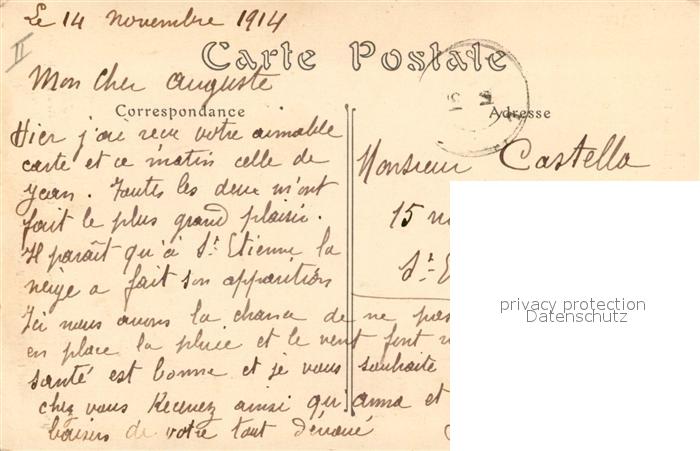 Le 14 novembre 1914
II
Carte Postale
Mon cher Auguste
Correspondance
Adresse
Hier j'ai reçu votre aimable
carte et ce matin celle de
Jean. Toutes les deux m'ont
fait le plus grand plaisir.
Il paraît qu'à St Etienne la
neige a fait son apparition
Ici nous avons la chance de ne pas
en place la pluie et le vent font
santé est bonne et je vous souhaite
chez vous Recevez ainsi qu'anna et
baisers de votre tout dévoué
Monsieur Castella
15
St E
privacy protection
Datenschutz